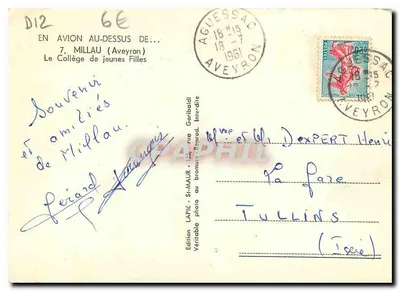 D12 6€
EN AVION AU-DESSUS DE...
7. MILLAU (Aveyron)
Le Collège de jeunes Filles
AGUESSAC
18 H15
18 -7
1961
AVEYRON
AGUESSAC
AVEYRON
Souvenir
et amitiés
de Millau.
Gérard
Edition LAPIE - St-MAUR - rue Garibaldi
Véritable photo au bromure Interdire
Mme et Mr DEXPERT Henri
La Gare
TULLINS
(Isère)